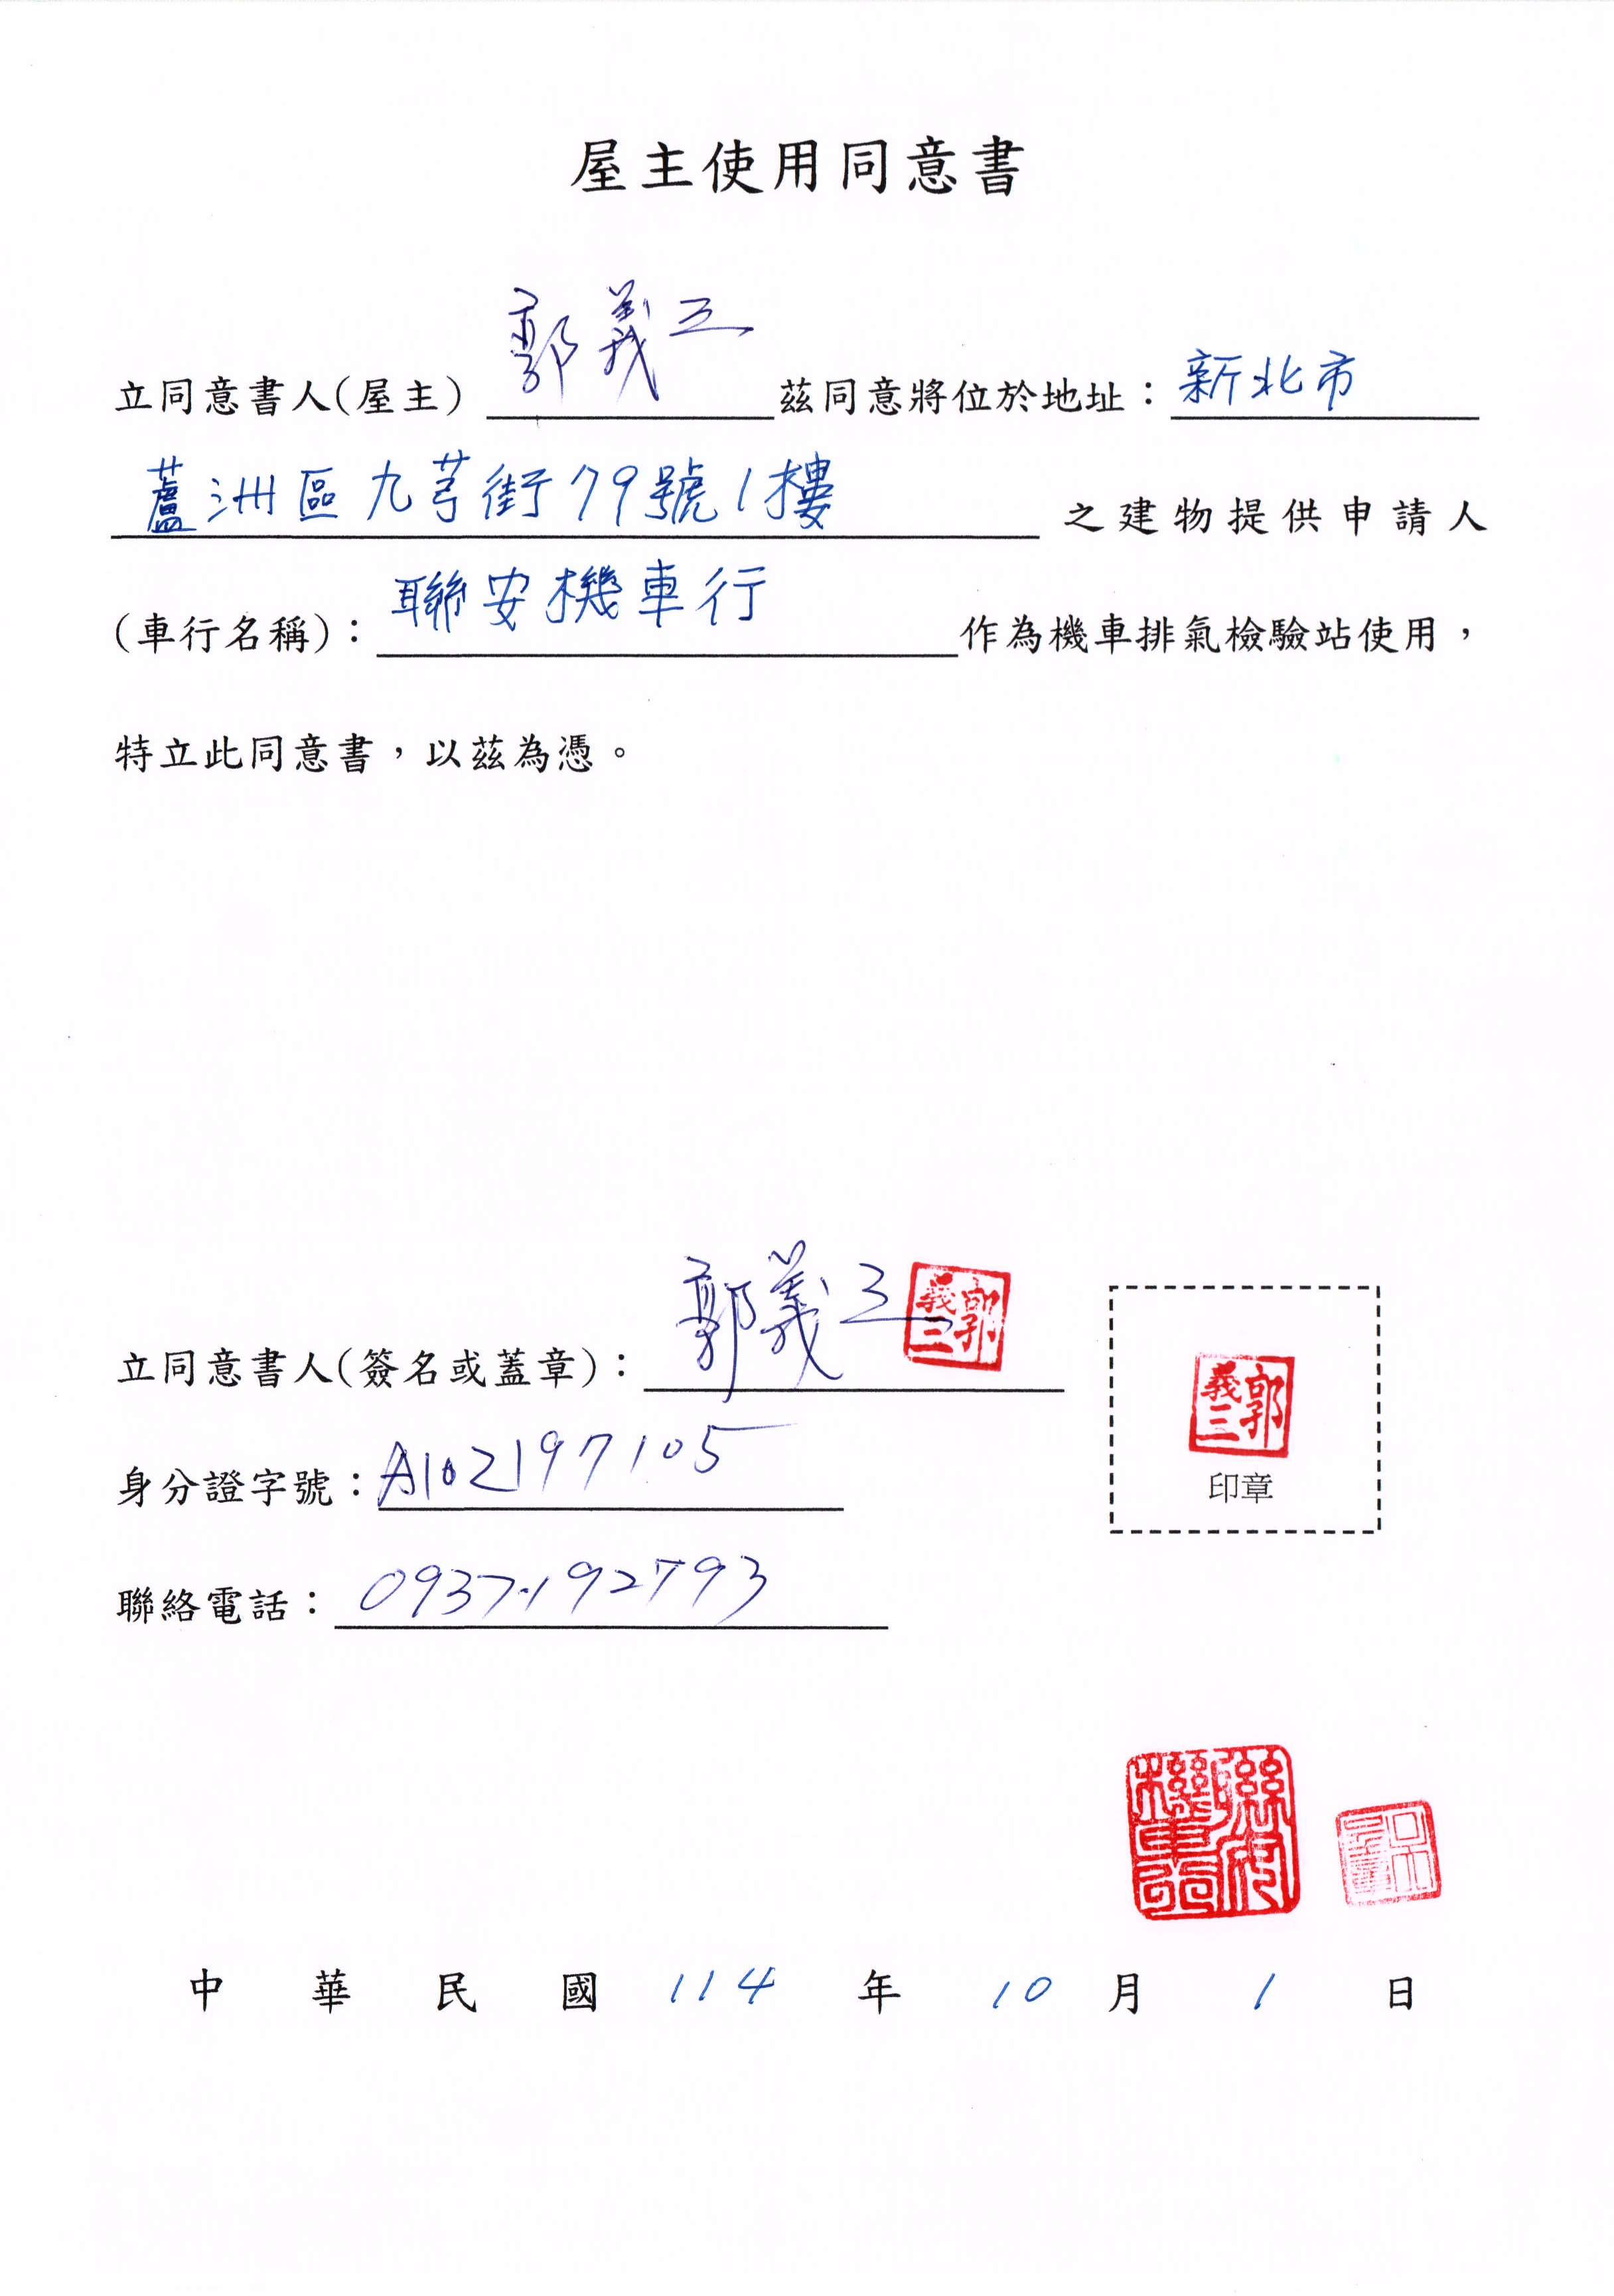 屋主使用同意書
立同意書人(屋主) 郭義三 茲同意將位於地址：新北市
蘆洲區九芎街79號1樓 之建物提供申請人
(車行名稱)：聯安機車行 作為機車排氣檢驗站使用，
特立此同意書，以茲為憑。
立同意書人(簽名或蓋章)：郭義三 郭義三
身分證字號：A102197105
郭義三
印章
聯絡電話：0937-192793
聯安機車行
中華民國 114 年 10 月 1 日